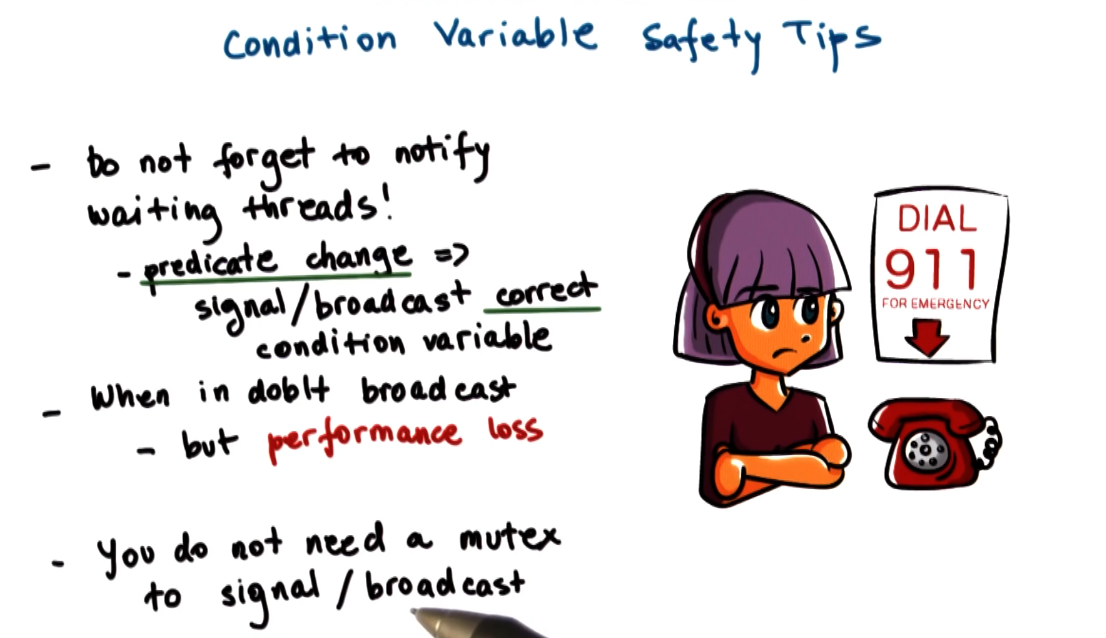 Condition Variable Safety Tips
- Do not forget to notify
waiting threads!
- predicate change =>
signal/broadcast correct
condition variable
- When in dobt broadcast
- but performance loss
- You do not need a mutex
to signal / broadcast
DIAL
911
FOR EMERGENCY